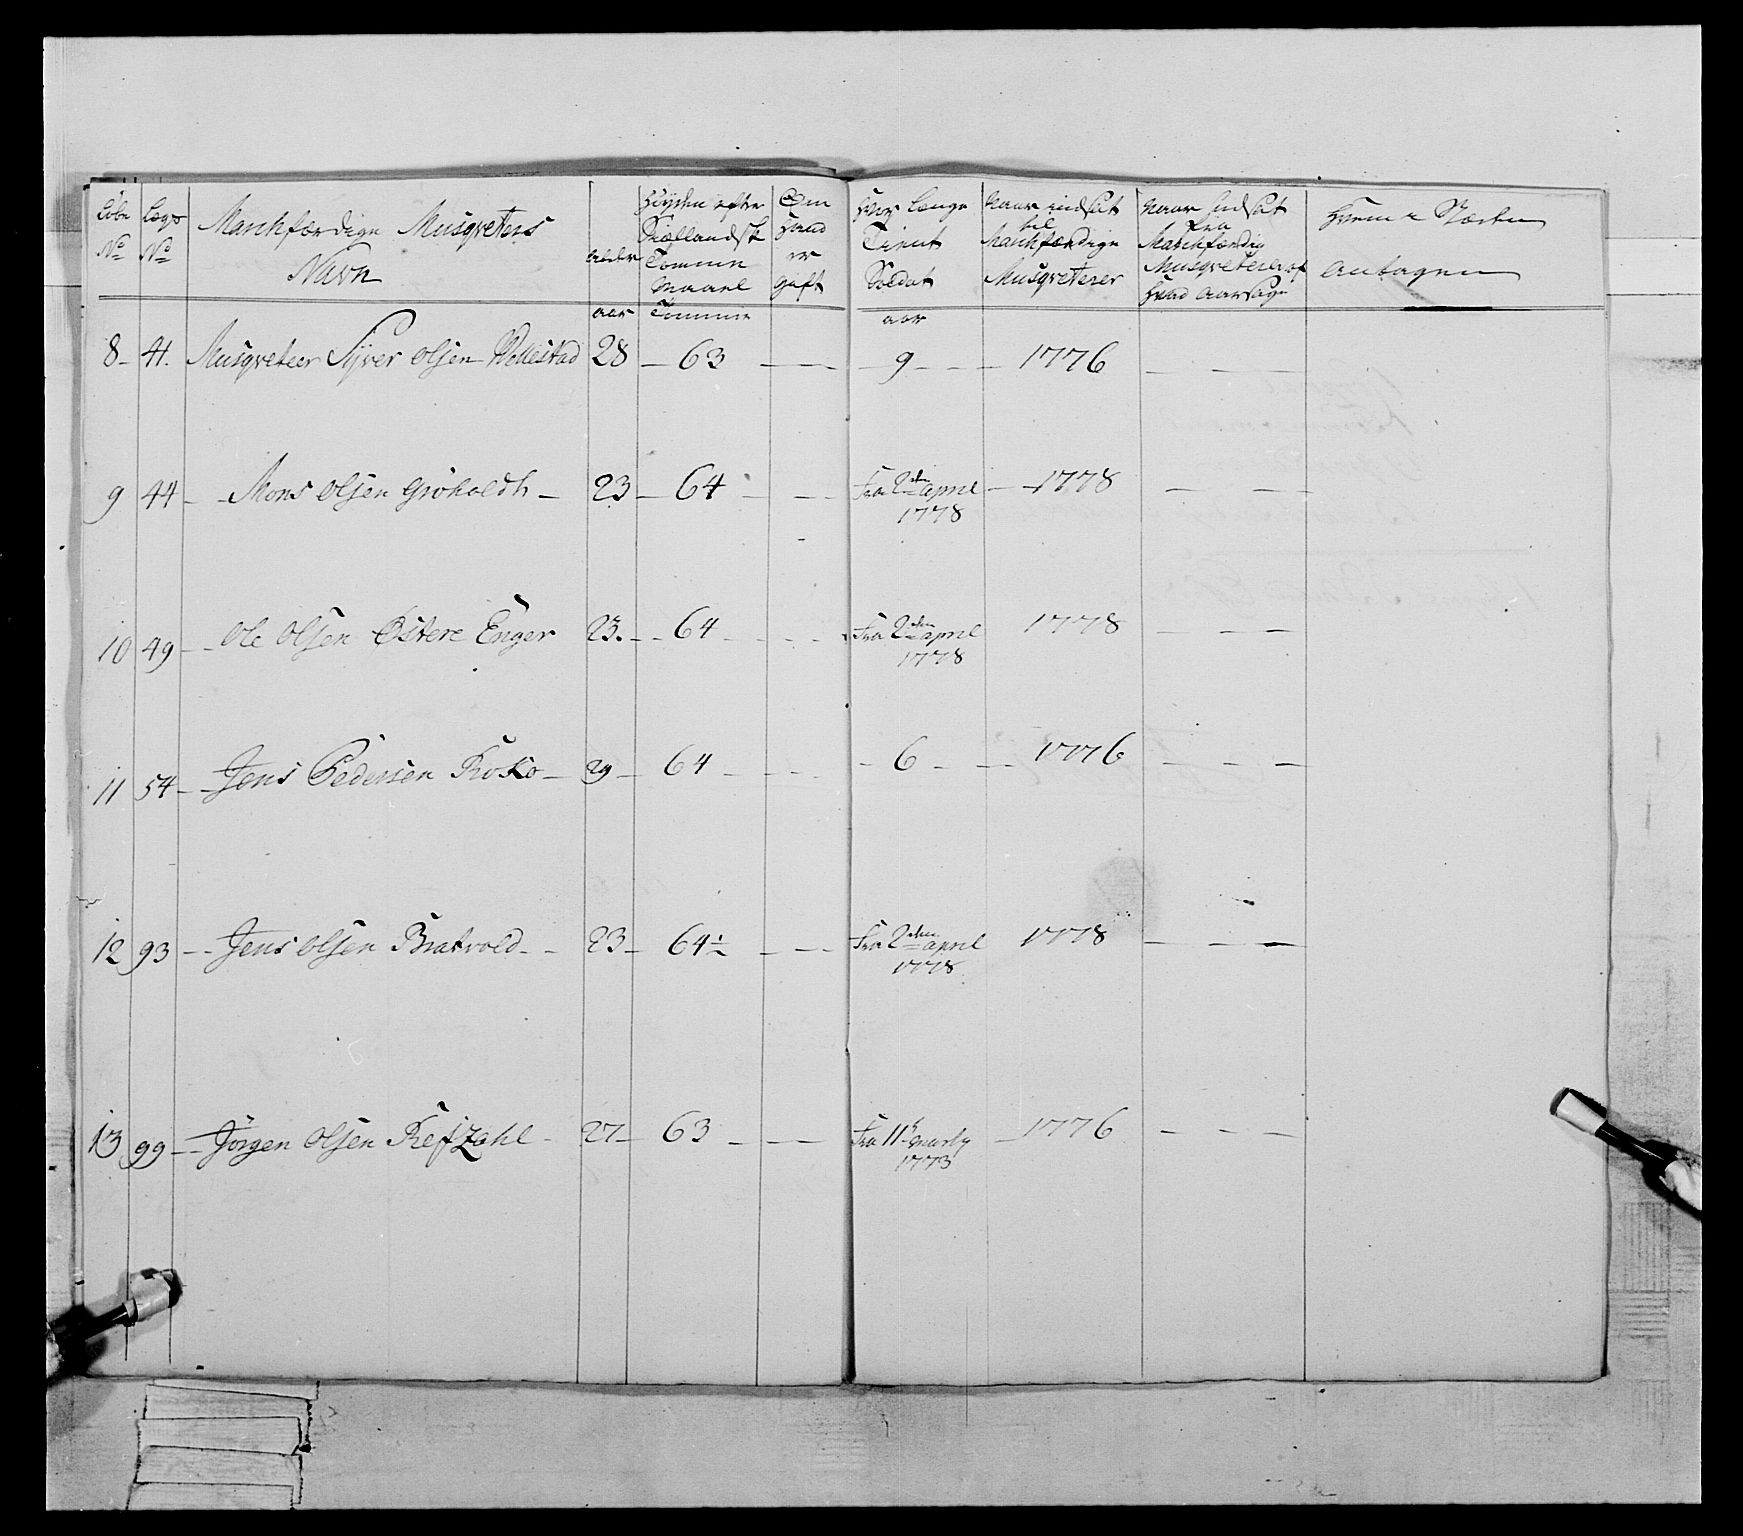 Løbe No
Lægs No
Marchfærdige Musqveters Navn
alder
Høyden efter Siællandsk Tomme Maael
Om Hand er gift
Hvor længe Tient Soldat
Naar indsat til Marchfærdige Musqveterer
Naar Indsat fra Marchfærdig Musqveterer of Hvad Aarsage
Hvem i Stæden Antagen
aar Tomme aar
8 - 41. Musqveteer Syver Olsen Vollestad 28 - 63 - - - 9 - - - 1776 - - -
9 44 - - Mons Olsen Groholdt - 23 - 64 - - - Fra 2den april 1778 - - 1778 - - -
10 49 - - Ole Olsen Østere Enger 23. - - 64 - - - Fra 2den april 1778 1778 - - -
11 54 - - Jens Pedersen Roko - 29 - 64 - - - - 6 - - - 1776 - - -
12 93 - - Jens Olsen Bratvold - - 23 - 64½ - - - Fra 2den april 1778 1778 - - -
13 99 - - Jørgen Olsen Refzahl - 27 - 63 - - - Fra 11t Marty 1773 - 1776 - - -